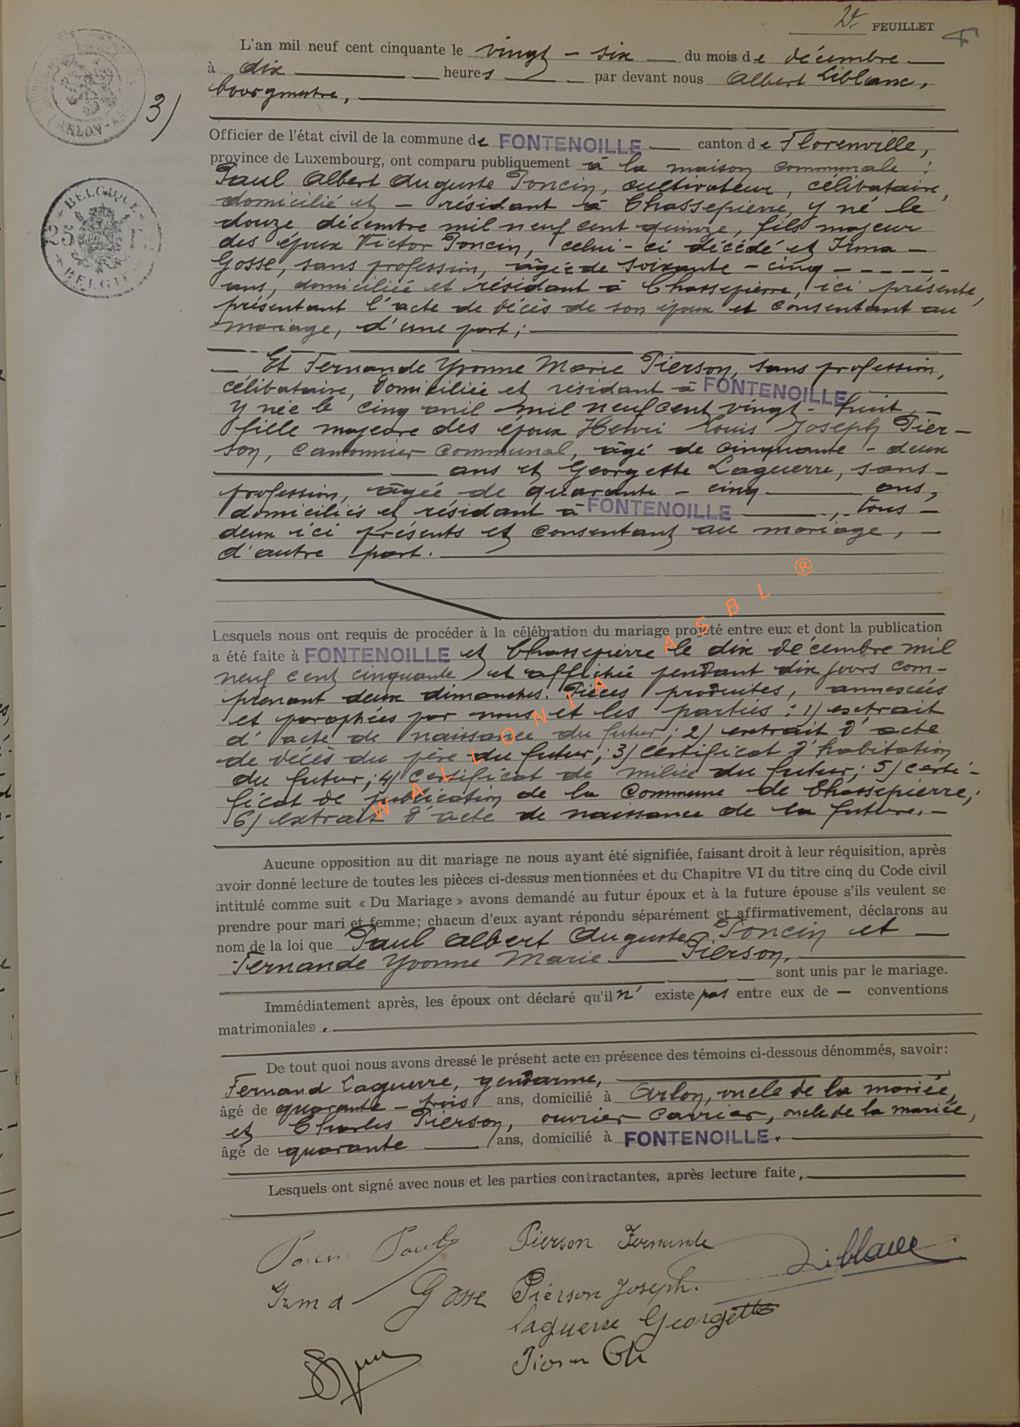 2e FEUILLET
L'an mil neuf cent cinquante le vingt - six du mois de décembre
à dix heures par devant nous Albert Liblanc,
bourgmestre,
3)
Officier de l'état civil de la commune de FONTENOILLE canton de Florenville,
province de Luxembourg, ont comparu publiquement à la maison communale :
Paul Albert Auguste Poncin, cultivateur, célibataire,
domicilié et - résidant à Chassepierre, y né le
douze décembre mil neuf cent quinze, fils majeur
des époux Victor Poncin, celui-ci décédé et Irma -
Gosse, sans profession, âgée de soixante - cinq - - - - - -
ans, domiciliée et résidant à Chassepierre, ici présente,
présentant l'acte de décès de son époux et consentant au
mariage, d'une part ;
Et Fernande Yvonne Marie Pierson, sans profession,
célibataire, domiciliée et résidant à FONTENOILLE
y née le cinq avril mil neuf cent vingt - huit -
fille majeure des époux Henri Louis Joseph Pier-
son, cantonnier communal, âgé de cinquante - deux
ans et Georgette Laguerre, sans -
profession, âgée de quarante - cinq ans,
domiciliés et résidant à FONTENOILLE , tous -
deux ici présents et consentant au mariage, -
d'autre part.
Lesquels nous ont requis de procéder à la célébration du mariage projeté entre eux et dont la publication
a été faite à FONTENOILLE et Chassepierre le dix décembre mil
neuf cent cinquante et affichée pendant dix jours com-
prenant deux dimanches. Pièces produites, annexées
et paraphées par nous et les parties : 1) extrait
d'acte de naissance du futur ; 2) extrait d'acte
de décès du père du futur ; 3) certificat d'habitation
du futur ; 4) certificat de milice du futur ; 5) certi-
ficat de publication de la commune de Chassepierre ;
6) extrait d'acte de naissance de la future. -
Aucune opposition au dit mariage ne nous ayant été signifiée, faisant droit à leur réquisition, après
avoir donné lecture de toutes les pièces ci-dessus mentionnées et du Chapitre VI du titre cinq du Code civil
intitulé comme suit « Du Mariage » avons demandé au futur époux et à la future épouse s'ils veulent se
prendre pour mari et femme; chacun d'eux ayant répondu séparément et affirmativement, déclarons au
nom de la loi que Paul Albert Auguste Poncin et
Fernande Yvonne Marie Pierson,
sont unis par le mariage.
Immédiatement après, les époux ont déclaré qu'il n' existe pas entre eux de - conventions
matrimoniales.
De tout quoi nous avons dressé le présent acte en présence des témoins ci-dessous dénommés, savoir:
Fernand Laguerre, gendarme,
âgé de quarante - trois ans, domicilié à Arlon, oncle de la mariée,
et Charles Pierson, ouvrier carrier, oncle de la mariée,
âgé de quarante ans, domicilié à FONTENOILLE.
Lesquels ont signé avec nous et les parties contractantes, après lecture faite,
Poncin Paul Pierson Fernande
Liblanc
Irma Gosse Pierson Joseph.
Laguerre Georgette
Pierson Ch
BELGIQUE
BELGIE
WALLONIA ASBL ®